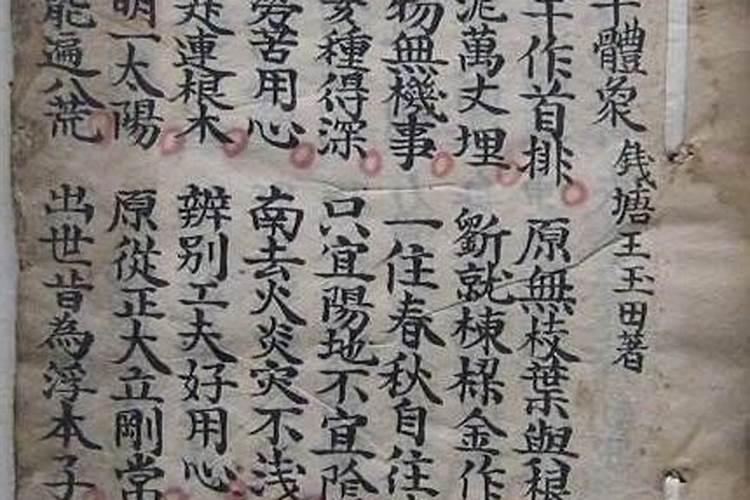 干體象 錢塘王玉田著
干作首排 原無枝葉與根
泥萬丈埋 斷就棟樑金作
物無機事 一住春秋自住
亥種得深 只宜陽地不宜陰
苦用心 南去火炎災不浅
連根木 辨别工夫好用心
明一太陽 原從正大立剛常
能遍八荒 出世昔為浮本子